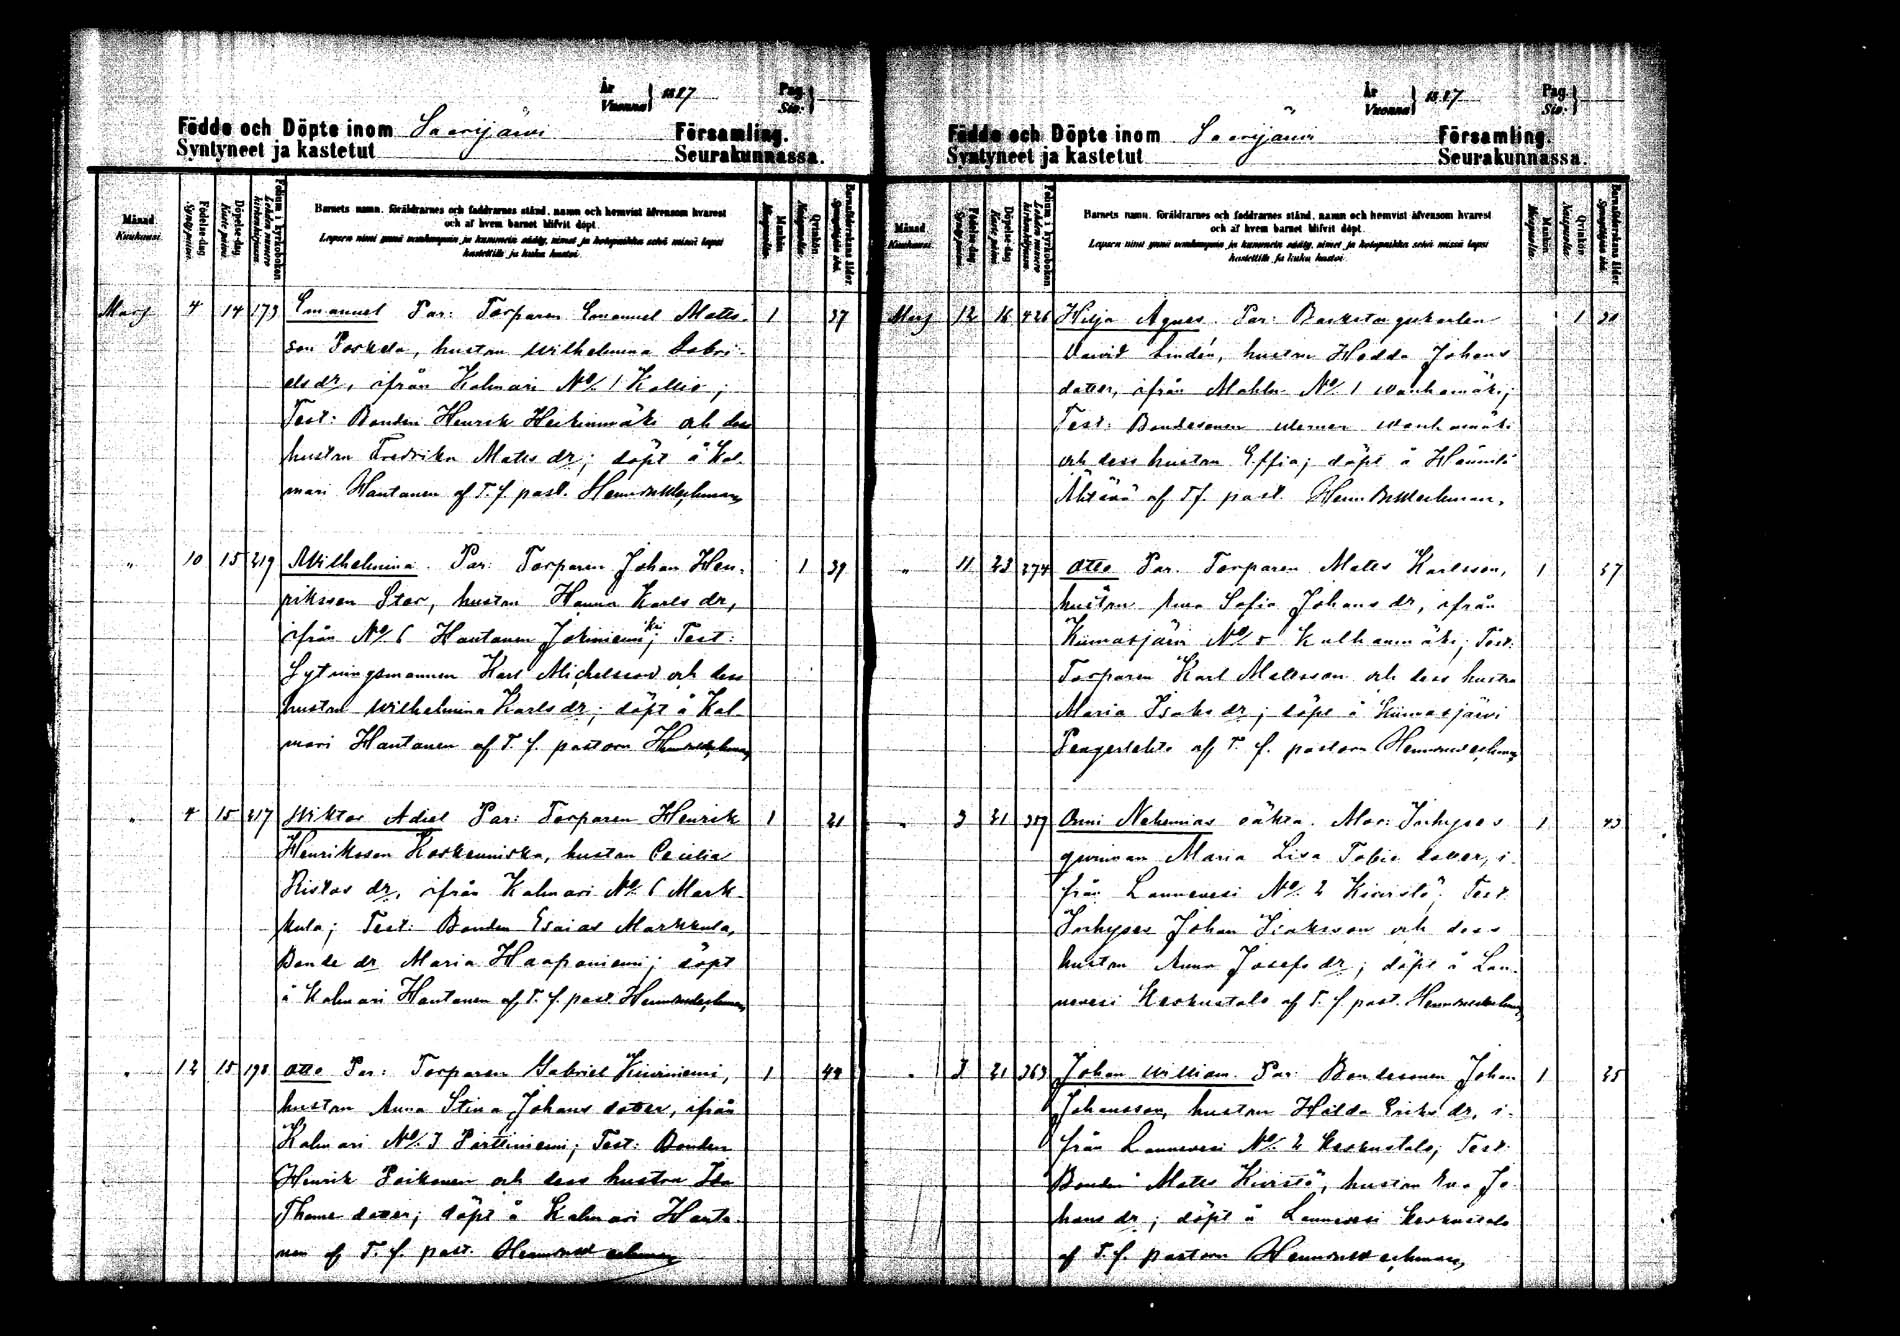 År
Vuonna } 1887
Pag.
Siv. }
Födde och Döpte inom Saarijärvi Församling.
Syntyneet ja kastetut Seurakunnassa.
Månad. Kuukausi.
Födelse-dag. Synty-päivä.
Döpelse-dag. Kaste-päivä.
Folium i kyrkoboken. Lehden numero kirkonkirjassa.
Barnets namn, föräldrarnes och faddrarnes stånd, namn och hemvist äfvensom hvarest
och af hvem barnet blifvit döpt.
Lapsen nimi ynnä wanhempain ja kummein sääty, nimet ja kotopaikka sekä missä lapsi
kastettiin ja kuka kastoi.
Mankön. Miespuolia.
Qvinkön. Naispuolia.
Barnaföderskans ålder. Synnyttäjän ikä.
Mars 4 14 173 Emanuel Par: Torparen Emanuel Matts- 1 37
son Porkela, hustru Wilhelmina Gabri-
elsdr, ifrån Kalmari No/. 1 Kallio;
Test: Bonden Henrik Heikinmäki och dess
hustru Fredrika Mattsdr; döpt å Kal-
mari Hautanen af T. f. past.
" 10 15 219 Wilhelmina. Par: Torparen Johan Hen- 1 39
riksson Star, hustru Hanna Karlsdr,
ifrån No/. 6 Hautanen Test:
Lytningsmannen Karl Michelsson och dess
hustru Wilhelmina Karlsdr; döpt å Kal-
mari Hautanen af T. f. pastorn
" 4 15 217 Wiktor Adiel Par: Torparen Henrik 1 21
Henriksson Koskenniska, hustru Cecilia
Ristos dr, ifrån Kalmari No/. 6 Mark-
kula; Test: Bonden Esaias Markkula,
Bonde dr Maria Haapaniemi; döpt
å Kalmari Hautanen af T. f. past.
" 12 15 198 Otto Par: Torparen Gabriel Kiviniemi, 1 44
hustru Anna Stina Johans dotter, ifrån
Kalmari No/. 3 Pirttiniemi; Test: Bonden
Henrik Poikonen och dess hustru Ida
Thome dotter; döpt å Kalmari Hauta-
nen af T. f. past.
År
Vuonna } 1887
Pag.
Siv. }
Födde och Döpte inom Saarijärvi Församling.
Syntyneet ja kastetut Seurakunnassa.
Månad. Kuukausi.
Födelse-dag. Synty-päivä.
Döpelse-dag. Kaste-päivä.
Folium i kyrkoboken. Lehden numero kirkonkirjassa.
Barnets namn, föräldrarnes och faddrarnes stånd, namn och hemvist äfvensom hvarest
och af hvem barnet blifvit döpt.
Lapsen nimi ynnä wanhempain ja kummein sääty, nimet ja kotopaikka sekä missä lapsi
kastettiin ja kuka kastoi.
Mankön. Miespuolia.
Qvinkön. Naispuolia.
Barnaföderskans ålder. Synnyttäjän ikä.
Mars 12 16 426 Hilja Agnes. Par: Backstugukarlen 1 31
David Lindén, hustru Hedda Johans
dotter, ifrån Mahlu No/. 1 Wanhamäki;
Test: Bondesonen Werner Wanhamäki
och dess hustru Effia; döpt å
af T. f. past.
" 11 23 374 Otto Par. Torparen Matts Karlsson, 1 37
hustru Anna Sofia Johansdr, ifrån
Kiimasjärvi No/. 5 Kalhanmäki; Test:
Torparen Karl Mattsson och dess hustru
Maria Isaksdr; döpt å Kiimasjärvi
af T. f. pastorn
" 3 21 357 Onni Nehemias oäkta. Mor: Inhyses 1 43
qvinnan Maria Lisa Tobie dotter, i-
från Lannevesi No/. 2 Kivistö; Test:
Inhyses Johan Isaksson och dess
hustru Anna Josefsdr; döpt å Lan-
nevesi Keskustalo af T. f. past.
" 3 21 363 Johan William. Par: Bondesonen Johan 1 25
Johansson, hustru Hilda Eriksdr, i-
från Lannevesi No/. 2 Keskustalo; Test:
Bonden Matts Kivistö, hustru Eva Jo-
hansdr; döpt å Lannevesi Keskustalo
af T. f. pastorn